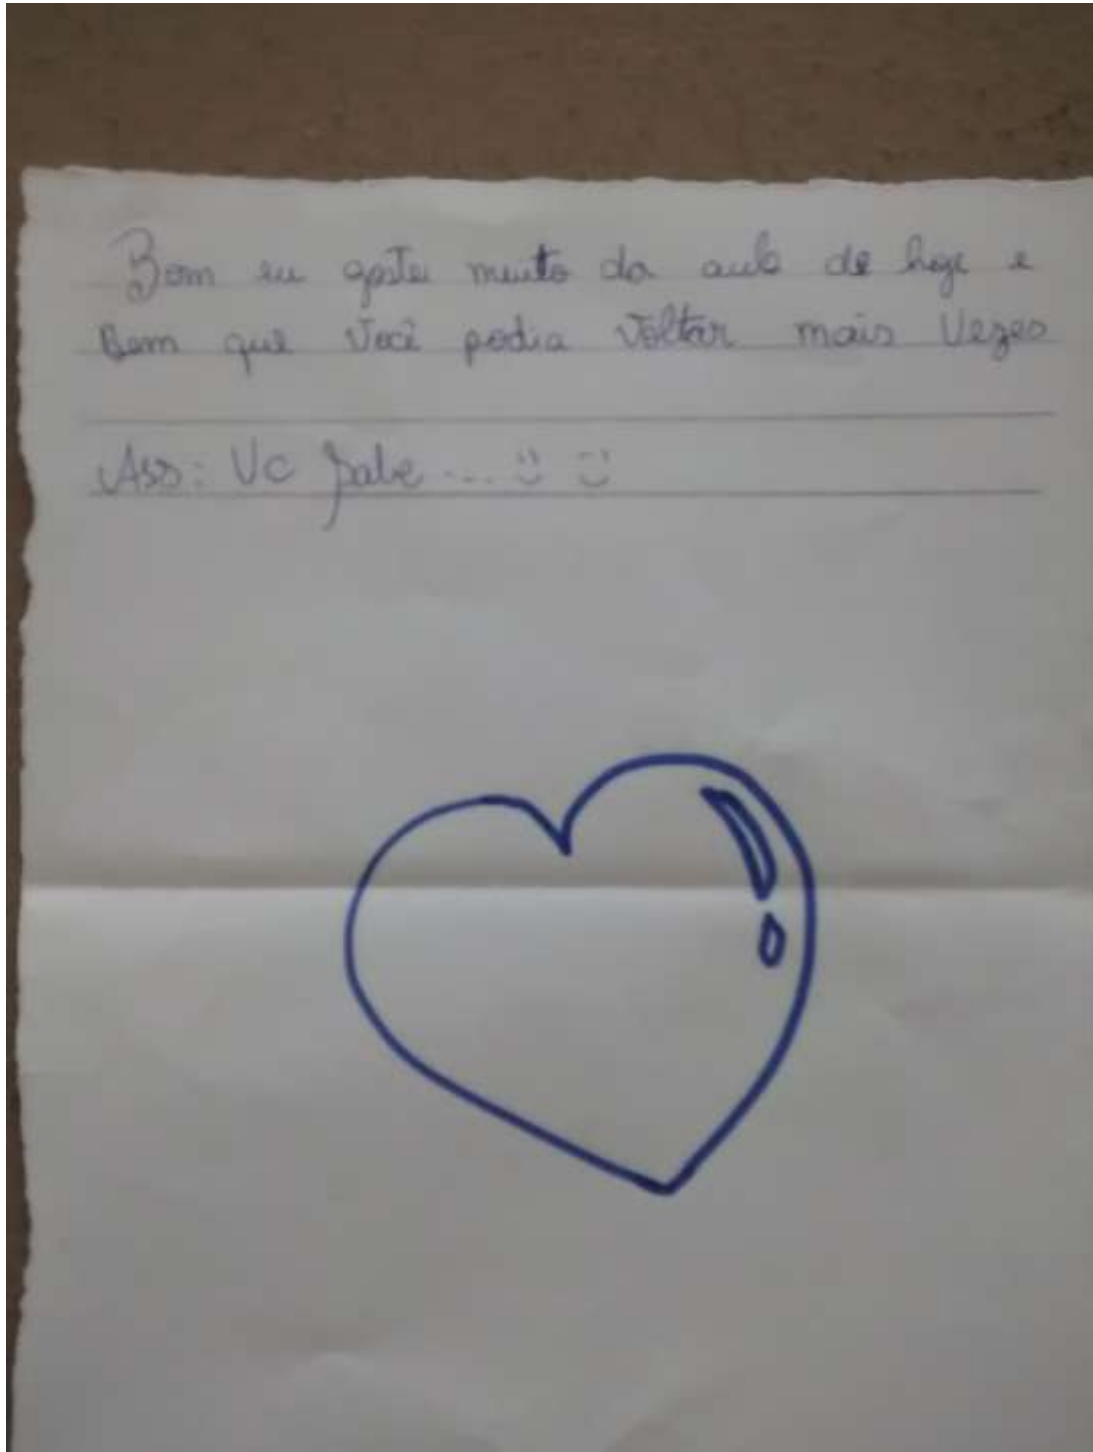 Bom eu gostei muito da aula de hoje e
Bem que Você podia Voltar mais Vezes
Ass: Vc Sabe ... :) :)